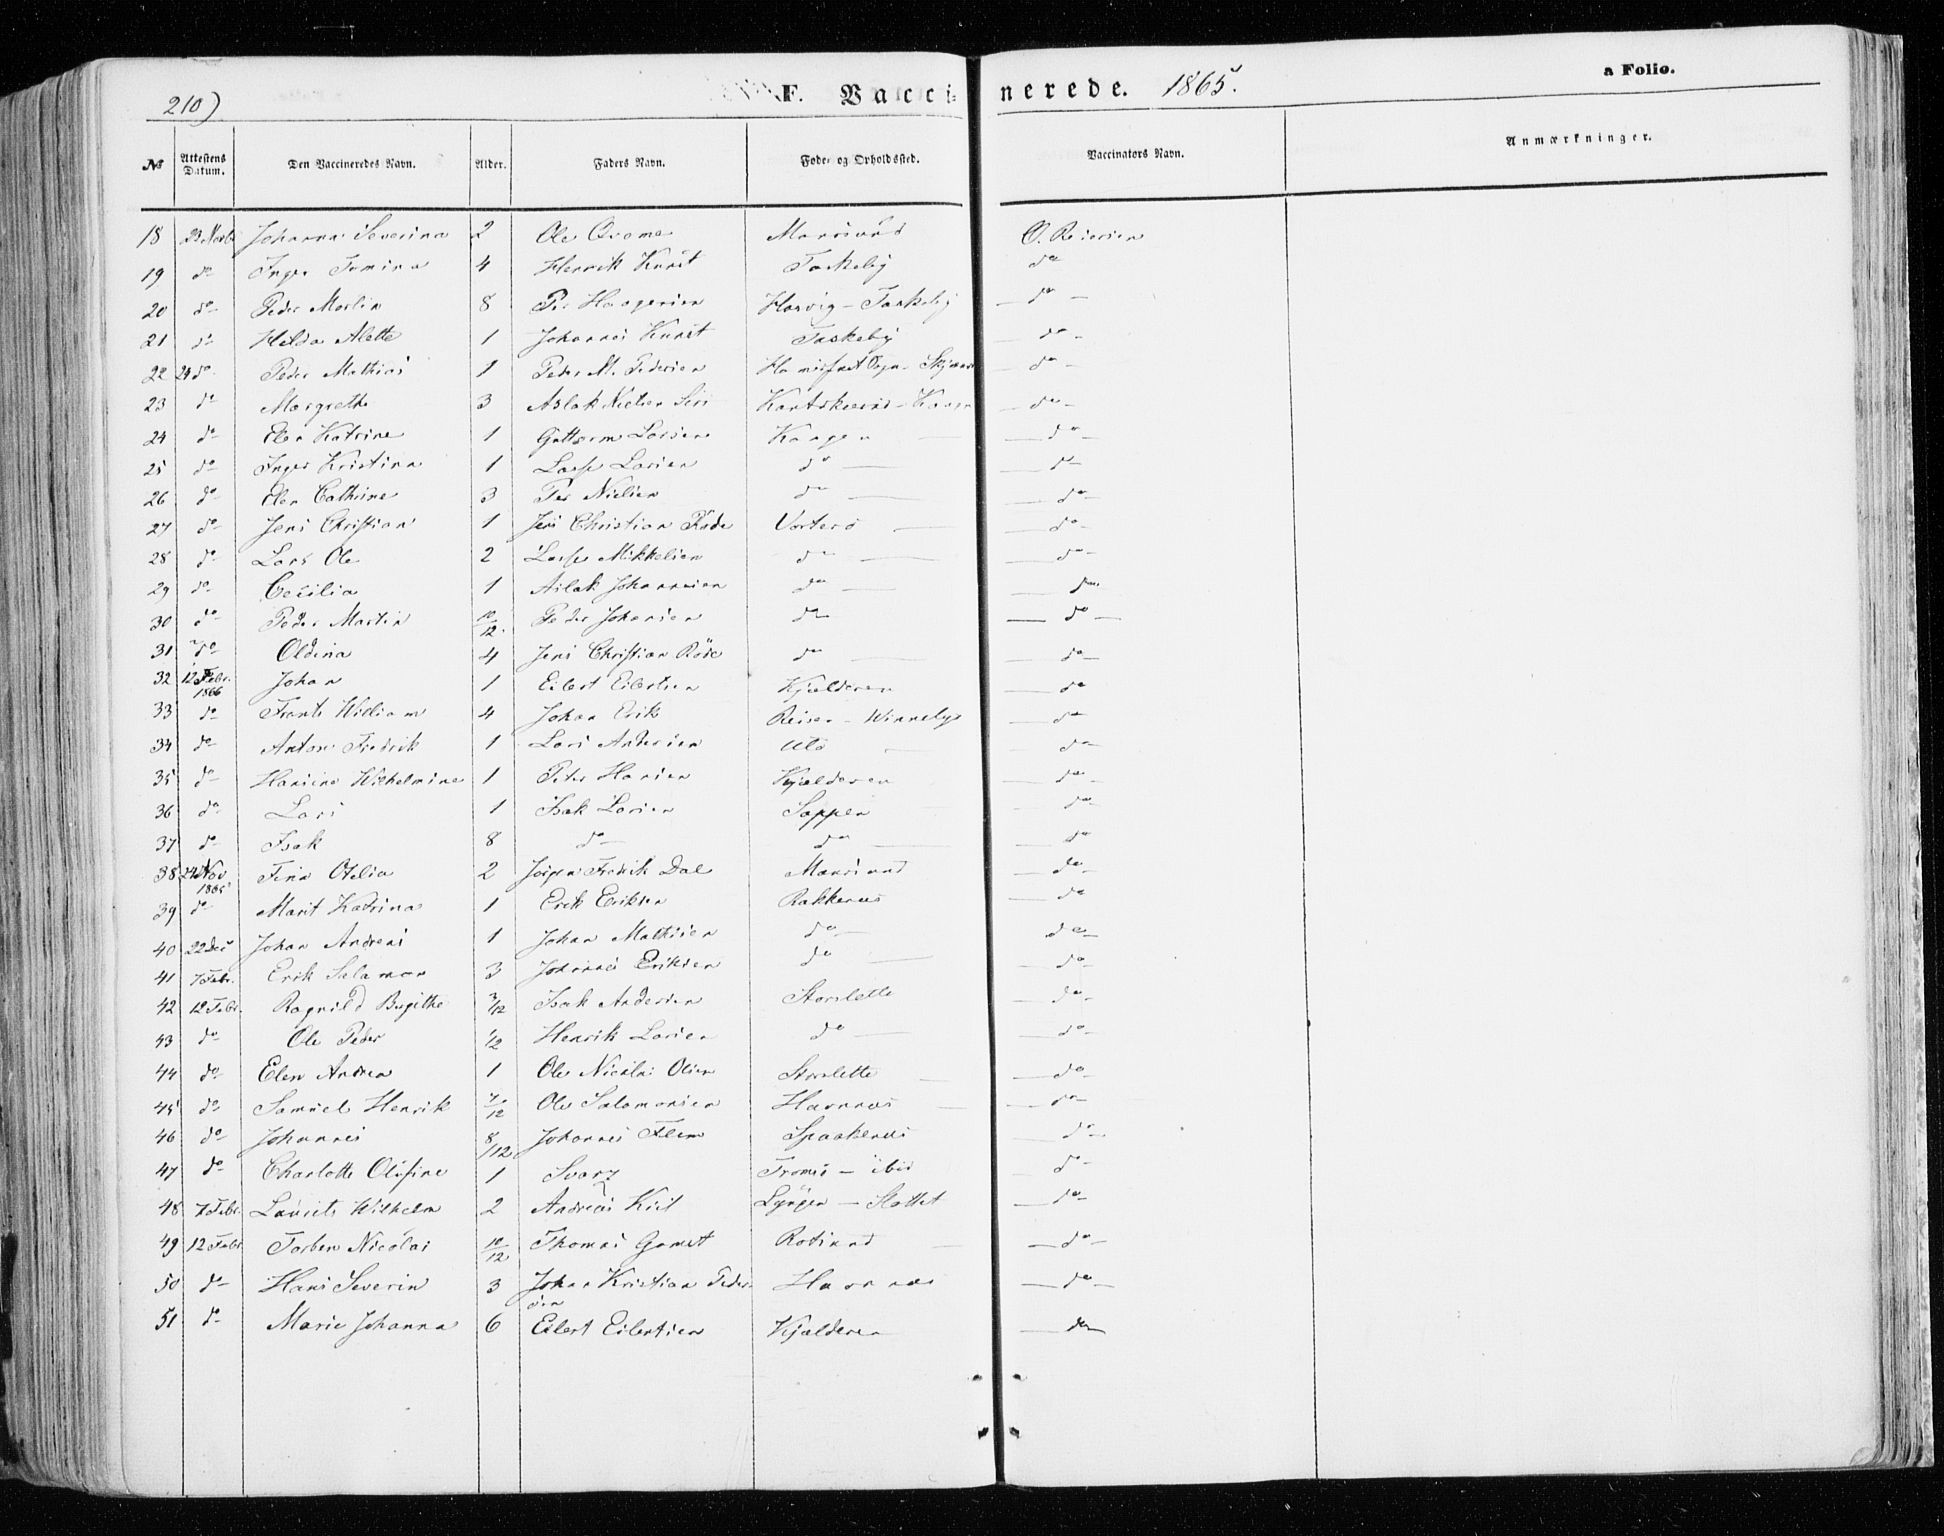 210)
F. Vaccinerede. 1865.
a Folio.
No Attestens Datum. Den Vaccineredes Navn. Alder. Faders Navn. Føde- og Opholdssted. Vaccinators Navn. Anmærkninger.
18 23 Johanna Severina 2 Ole Maursund O. Reiersen
19 do Inger 4 Henrik Kunst Taskeby do
20 do Peder Martin 8 Per Haagensen Havvig - Taskeby do
21 do Hilda Alette 1 Johannes Kunst Taskeby do
22 24 do Peder Mathias 1 Peder M. Pedersen Hamerfest Sogn - do
23 do Margrethe 3 Aslak Nielsen Siri - Kaagen do
24 do Elen Katrine 1 Guttorm Larsen Kaagen do
25 do Inger Kristina 1 Lasse Larsen do do
26 do Elen Cathrine 3 Per Nielsen do do
27 do Jens Christian 1 Jens Christian Røde Vorterø do
28 do Lars Ole 2 Lasse Mikkelsen do do
29 do Cecilia 1 Aslak Johannesen do do
30 do Peder Martin 10/12 Peder Johansen do do
31 do Oldina 4 Jens Christian Röde do do
32 12 Febr. 1866 Johan 1 Eilert Eilertsen Kjælderen do
33 do Frants William 4 Johan Erik Reisen - do
34 do Anton Fredrik 1 Lars Andersen Ulø do
35 do Hansine Wilhelmine 1 Peter Hansen Kjælderen do
36 do Lars 1 Isak Larsen Sappen do
37 do Isak 8 do do do
38 24 Nov 1865 Tina Otelia 2 Jørgen Fredrik Dal Maursund do
39 do Marit Katrina 1 Erik Eriksen Rakkenæs do
40 22 Dec Johan Andreas 1 Johan Mathisen do do
41 7 Febr. Erik Salamon 3 Johannes Eriksen do do
42 12 Febr. Ragnild Birgithe 3/12 Isak Andersen Storslette do
43 do Ole Peder 1/2 Henrik Larsen do do
44 do Elen Andrea 1 Ole Nicolai Olsen Storslette do
45 do Samuel Henrik 7/12 Ole Salamonsen Havnnæs do
46 do Johannes 8/12 Johannes Flem Spaakenæs do
47 do Charlotte Olufine 1 Svarz Tromsø - ibid do
48 7 Febr. Laurits Wilhelm 2 Andreas Kiil Lyngen - Slottet do
49 12 Febr. Torben Nicolai 10/12 Thomas Gamst Rotsund do
50 do Hans Severin 3 Johan Kristian Pedersen Havnnæs do
51 do Marie Johanna 6 Eilert Eilertsen Kjælderen do